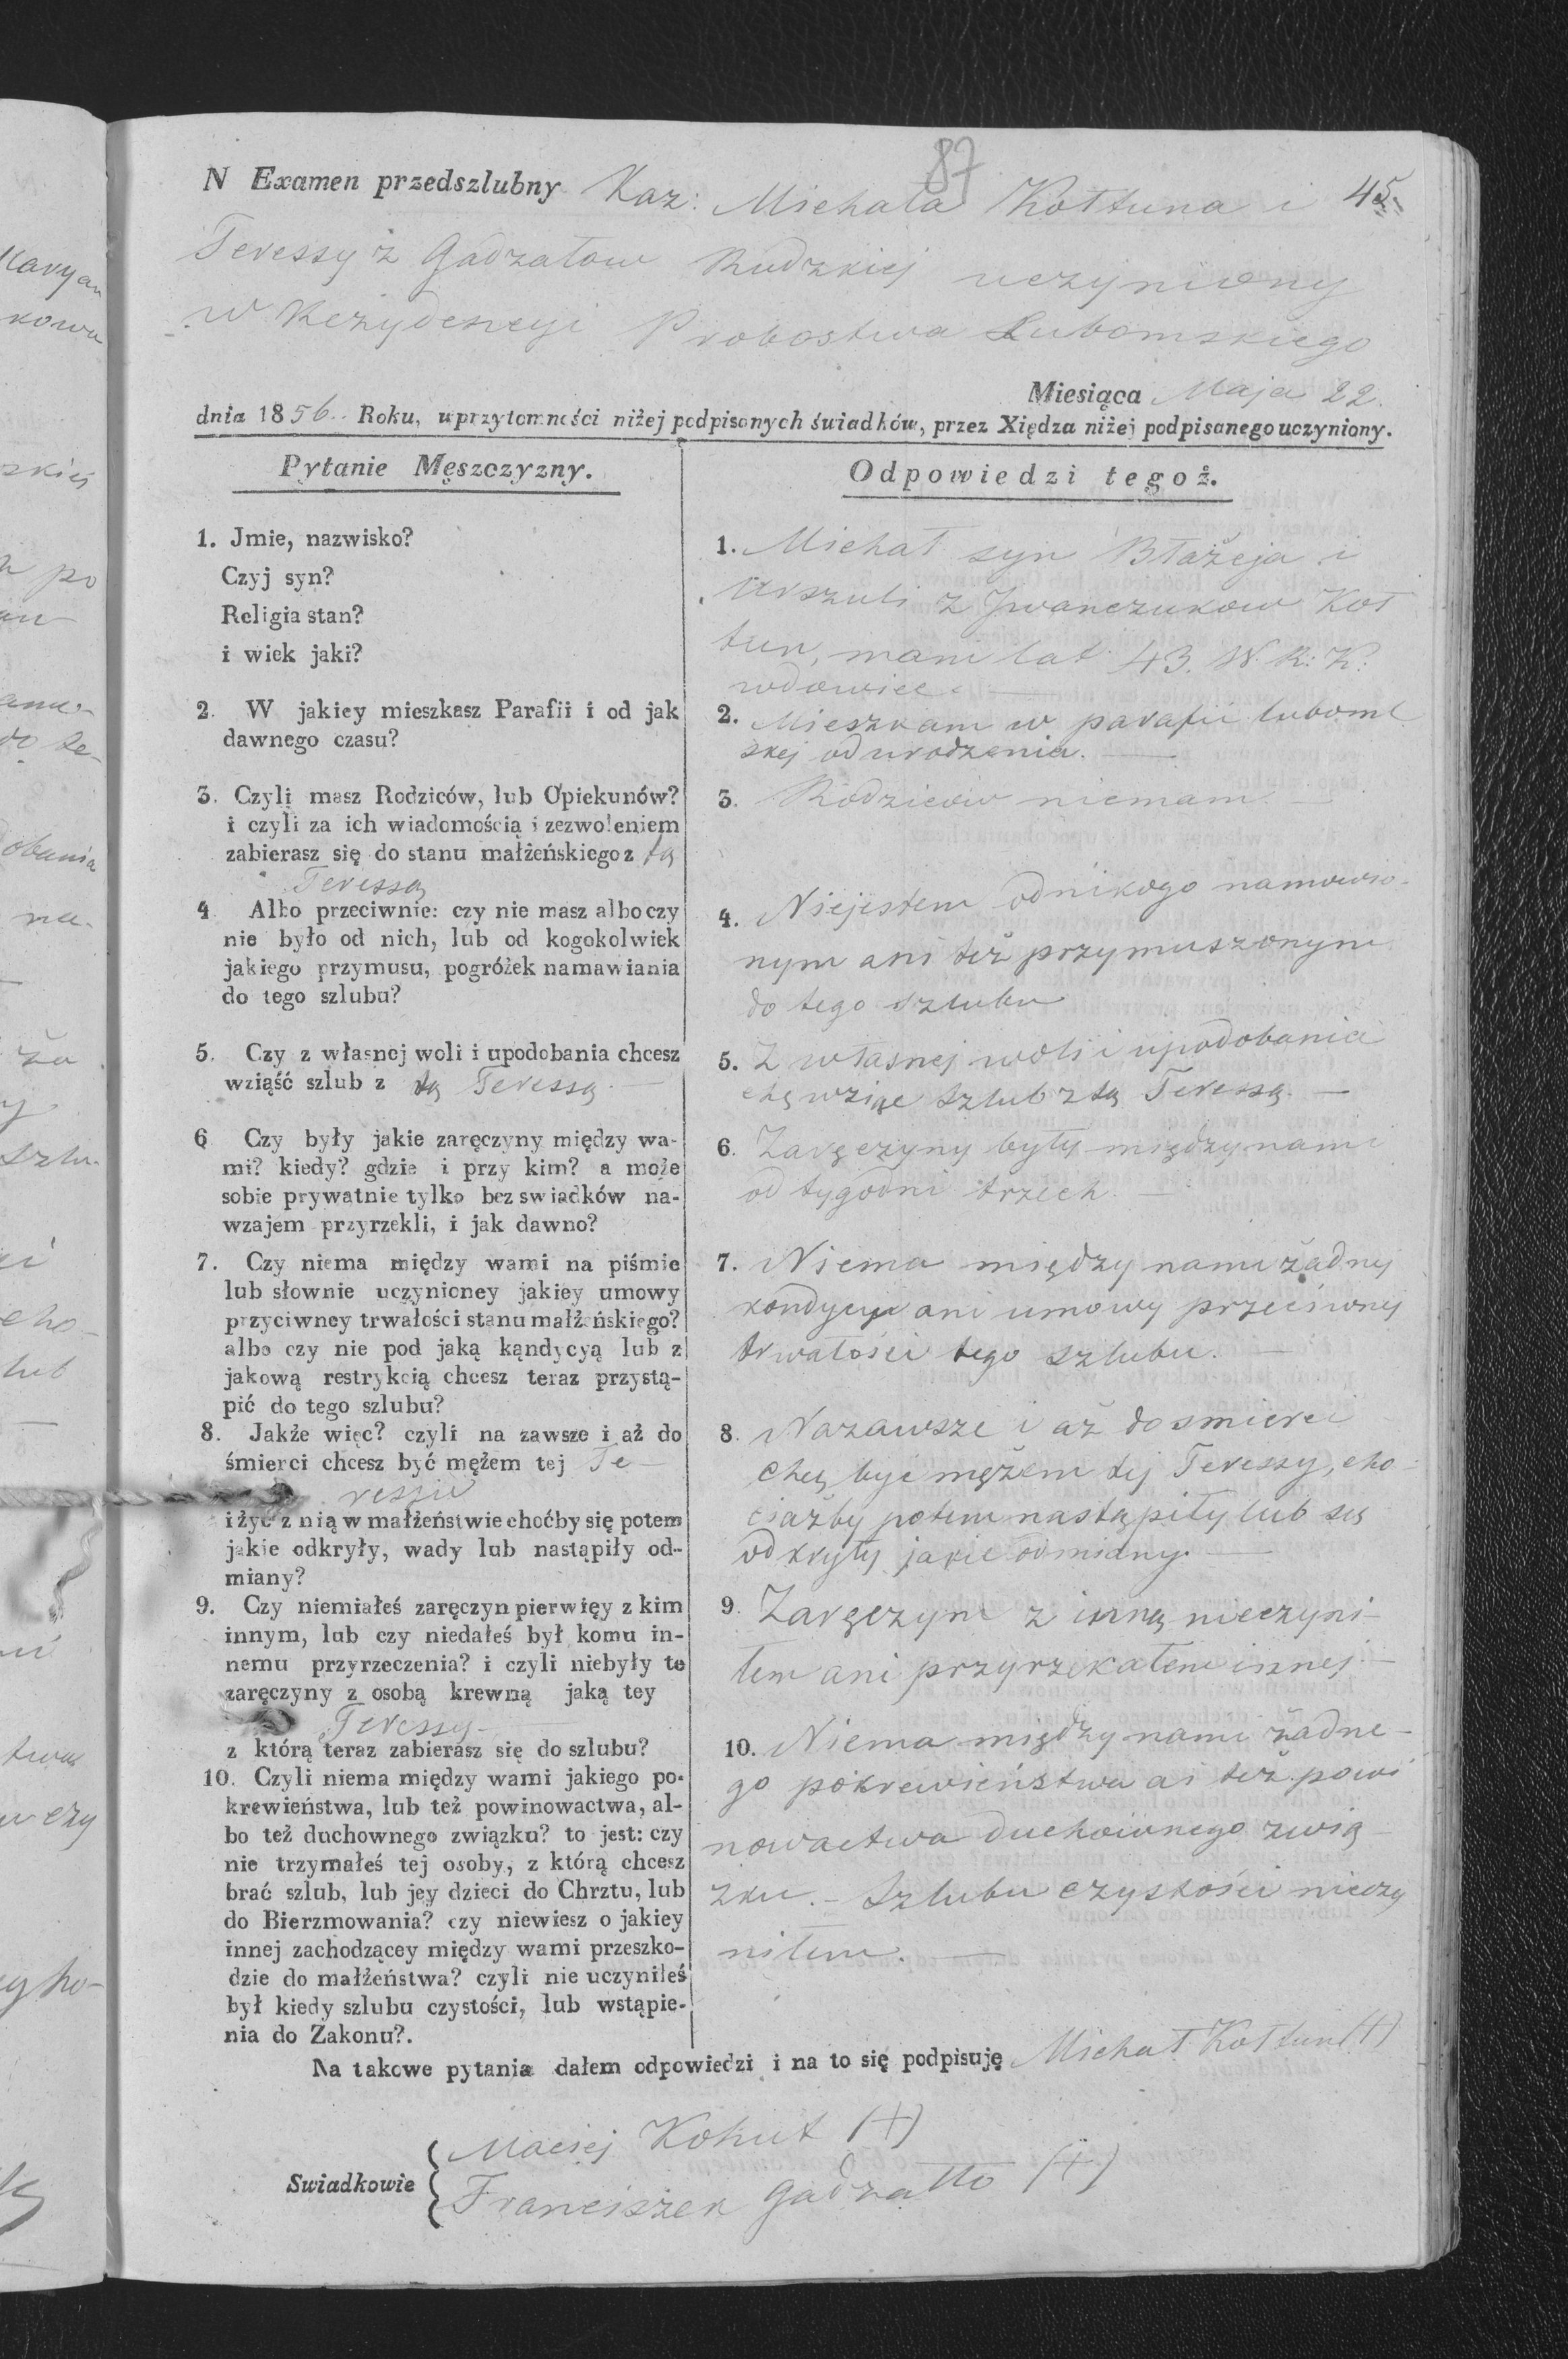 87
N Examen przedszlubny Kaz: Michała Kołtuna i 45.
Teressy z Gadzałow Rudzkiej uczyniony
w Rezydencyi Probostwa Lubomskiego
Miesiąca Maja 22.
dnia 1856. Roku, w przytomności niżej podpisanych świadków, przez Xiędza niżej podpisanego uczyniony.
Pytanie Męszczyzny.
1. Jmie, nazwisko?
Czyj syn?
Religia stan?
i wiek jaki?
2. W jakiey mieszkasz Parafii i od jak
dawnego czasu?
3. Czyli masz Rodziców, lub Opiekunów?
i czyli za ich wiadomością i zezwoleniem
zabierasz się do stanu małżeńskiego z tą
Teressą
4 Albo przeciwnie: czy nie masz albo czy
nie było od nich, lub od kogokolwiek
jakiego przymusu, pogróżek namawiania
do tego szlubu?
5. Czy z własnej woli i upodobania chcesz
wziąść szlub z tą Teressą. —
6 Czy były jakie zaręczyny między wa-
mi? kiedy? gdzie i przy kim? a może
sobie prywatnie tylko bez swiadków na-
wzajem przyrzekli, i jak dawno?
7. Czy niema między wami na piśmie
lub słownie uczynioney jakiey umowy
przyciwney trwałości stanu małżeńskiego?
albo czy nie pod jaką kąndycyą lub z
jakową restrykcią chcesz teraz przystą-
pić do tego szlubu?
8. Jakże więc? czyli na zawsze i aż do
śmierci chcesz być mężem tej Te-
ressie
i żyć z nią w małżeństwie choćby się potem
jakie odkryły, wady lub nastąpiły od-
miany?
9. Czy niemiałeś zaręczyn pierwięy z kim
innym, lub czy niedałeś był komu in-
nemu przyrzeczenia? i czyli niebyły te
zaręczyny z osobą krewną jaką tey
Teressy—
z którą teraz zabierasz się do szlubu?
10. Czyli niema między wami jakiego po-
krewieństwa, lub też powinowactwa, al-
bo też duchownego związku? to jest: czy
nie trzymałeś tej osoby, z którą chcesz
brać szlub, lub jey dzieci do Chrztu, lub
do Bierzmowania? czy niewiesz o jakiey
innej zachodzącey między wami przeszko-
dzie do małżeństwa? czyli nie uczyniłeś
był kiedy szlubu czystości, lub wstąpie-
nia do Zakonu?.
Odpowiedzi tegoż.
1. Michał syn Błażeja i
Urszuli z Jwanczukow Koł
tun, mam lat 43. W. R: K:
wdowiec. —
2. Mieszkam w parafii luboml
skej od urodzenia. —
3. Rodzicow niemam —
4. Niejestem od nikogo namowio-
nym ani też przymuszonym
do tego szlubu
5. Z własnej woli i upodobania
chę wziąc szlub z tą Teressą. —
6. Zaręczyny były między nami
od tygodni trzech. —
7. Niema między nami żadnej
kondycyi ani umowy przeciwnej
trwałości tego szlubu. —
8. Nazawsze i aż do smierci
chcę być mężem tej Teressy, cho-
ciażby potem nastąpiły lub się
odkryły jakie odmiany. —
9. Zaręczyn z inną nieczyni-
łem ani przyrzekałem innej. —
10. Niema między nami żadne-
go pokrewieństwa ai też powi
nowactwa duchownego zwią
zku. — Szlubu czystości nieczy
niłem. —
Na takowe pytania dałem odpowiedzi i na to się podpisuję Michał Kołtun (+)
Swiadkowie
Maciej Kohut (+)
Franciszek Gadzałło (+)